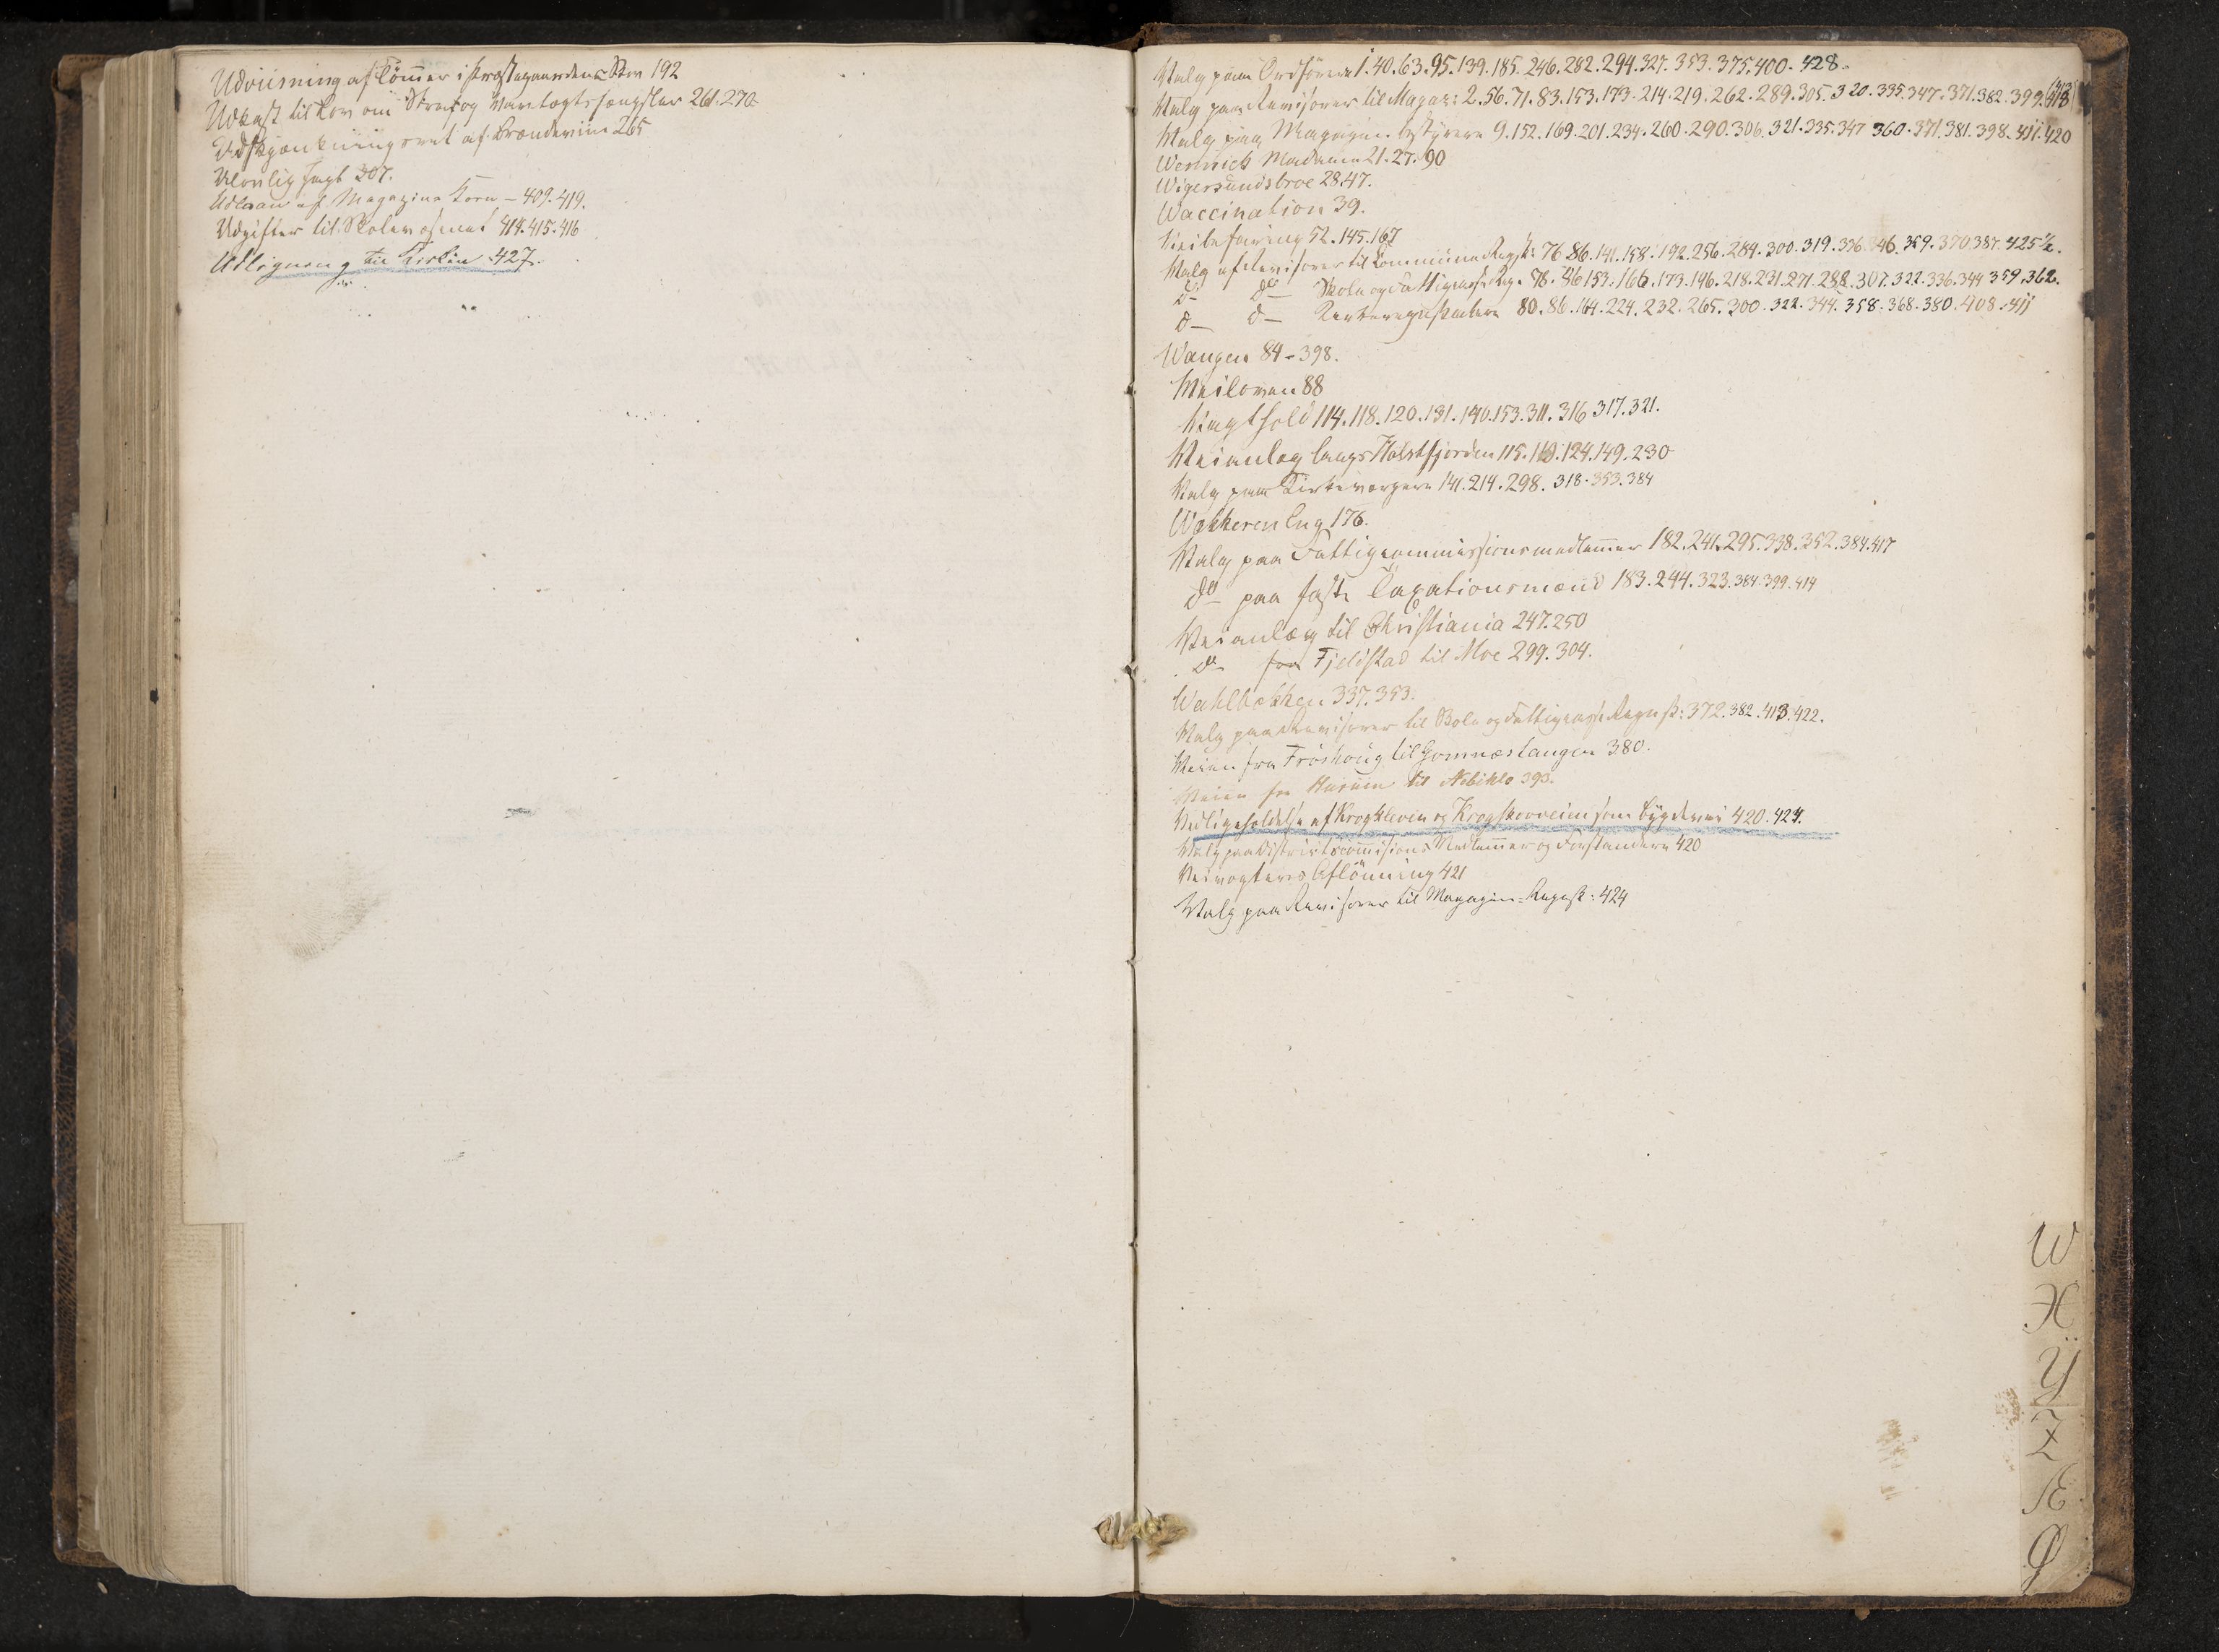 Udviisning af Tömmer i Præstegaardens Skov 192
Udkast til Lov om Straf og Varetægtsfængsler 261.270
Udskjænkningsret af Brændeviin 265
Ulovlig Jagt 207.
Udlaan af Magazins Korn - 409.419.
Udgifter til Skolevæsenet 414.415.416
Udligning til 427.
Valg paa Ordförere 1.40.63.95.139.185.246.282.294.327.353.375.400.428.
Valg paa Revisorer til Magaz: 2.56.71.83.153.173.214.219.262.289.305.320.335.347.371.382.399.
Valg paa Magazinbestyrere 9.152.169.201.234.260.290.306.321.335.347 360.371.381.398.411.420
Wennick Madame 21.27.90
Wigersundsbroe 28.47.
Waccination 39.
Veibefaring 52.145.167
Valg af Revisorer til Commune Regsk: 76 86.141.158.192.256.284.300.319.336.346.359.370.387.425½.
do do Skole og Fattigcasse Reg. 78.86 153.166.173.196.218.231.271.288.307.322.336.344 359.362.
do do Kirkeregnskaberne 80.86.164.224.232.265.300.322.344.358.368.380.408.411
Wangen 84-398.
Veiloven 88
Vingthold 114.118.120.131.140.153.311.316 317.321.
Veianlæg langs Holsfjorden 115.119.124.149.230
Valg paa Kirkeværgere 141.214.298.318.353.384
Wækkeren Eng 176.
Valg paa Fattigcommissionsmedlemmer 182.241.295.338.352.384.417
do paa faste Taxationsmænd 183.244.323.384.399.414
Veianlæg til Christiania 247.250
do fra Fjeldstad til Moe 299.304.
Wahlbækken 337.353.
Valg paa Revisorer til Skole og Fattigcasse Regnsk: 372.382.413.422.
Veien fra Fröshoug til Gomnæstangen 380.
Veien fra Harum til 393.
Vedligeholdelse af Krogkleven og Krogskovveien som Bygdevei 420.424.
Valg paa Districtscommisions Medlemmer og Forstandere 420
Veivogteres Aflönning 421
Valg paa Revisorer til Magazin-Regnsk: 424
W
X
Ÿ
Z
Æ
Ø